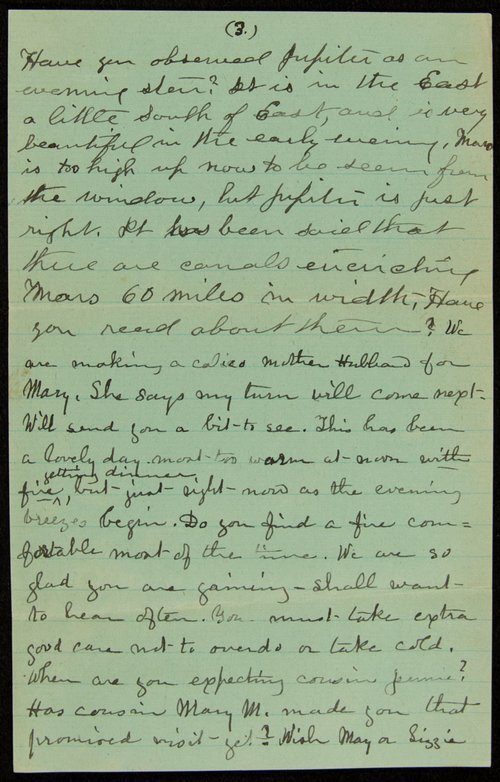 (3.)
Have you observed Jupiter as an
evening star? It is in the East
a little South of East, and is very
beautiful in the early evening, Mars
is too high up now to be seen from
the window, but Jupiter is just
right. It has been said that
there are canals encircling
Mars 60 miles in width, Have
you read about them? We
are making a calico Mother Hubbard for
Mary. She says my turn will come next-
Will send you a bit to see. This has been
a lovely day most too warm at noon with
getting dinner
fire, but just right now as the evening
breezes begin. Do you find a fire com=
fortable most of the time. We are so
glad you are gaining - shall want
to hear often. You must take extra
good care not to overdo or take cold.
When are you expecting cousin Jennie?
Has cousin Mary M. made you that
promised visit yet? Wish May or Lizzie